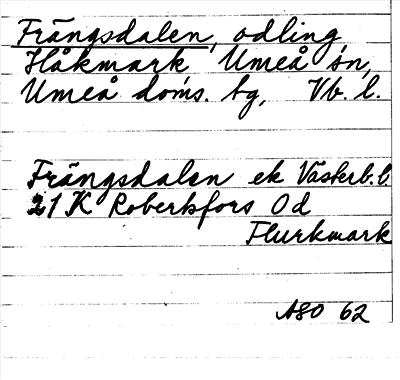 Frängsdalen, odling
Håkmark Umeå sn,
Umeå doms. tg, Vb. l.
Frängsdalen ek Västerb. l.
21 K Robertsfors 0 d
Flurkmark
ASO 62